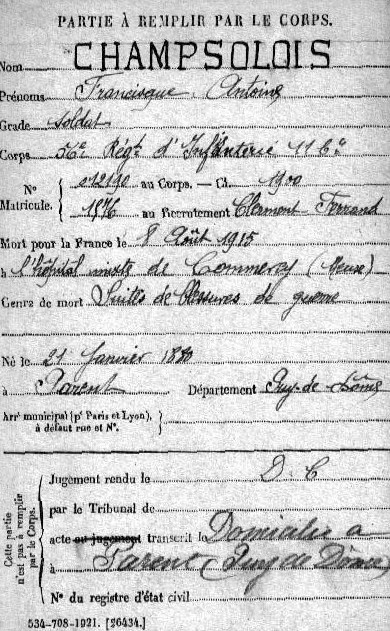 PARTIE À REMPLIR PAR LE CORPS.
Nom CHAMPSOLOIS
Prénoms Francisque Antoine
Grade Soldat
Corps 56e Régt d'Infanterie 11 Cie
N° 012110 au Corps. — Cl. 1900
Matricule. 1576 au Recrutement Clermont-Ferrand
Mort pour la France le 8 Août 1915
à l'hôpital mixte de Commercy (Meuse)
Genre de mort Suites de blessures de guerre
Né le 21 Janvier 1880
à Parent Département Puy-de-Dôme
Arrt municipal (pr Paris et Lyon),
à défaut rue et N°.
Cette partie n'est pas à remplir par le Corps.
Jugement rendu le D. C
par le Tribunal de
acte ou jugement transcrit le Domicilié à
à Parent (Puy de Dôme)
N° du registre d'état civil
534-708-1921. [26434.]